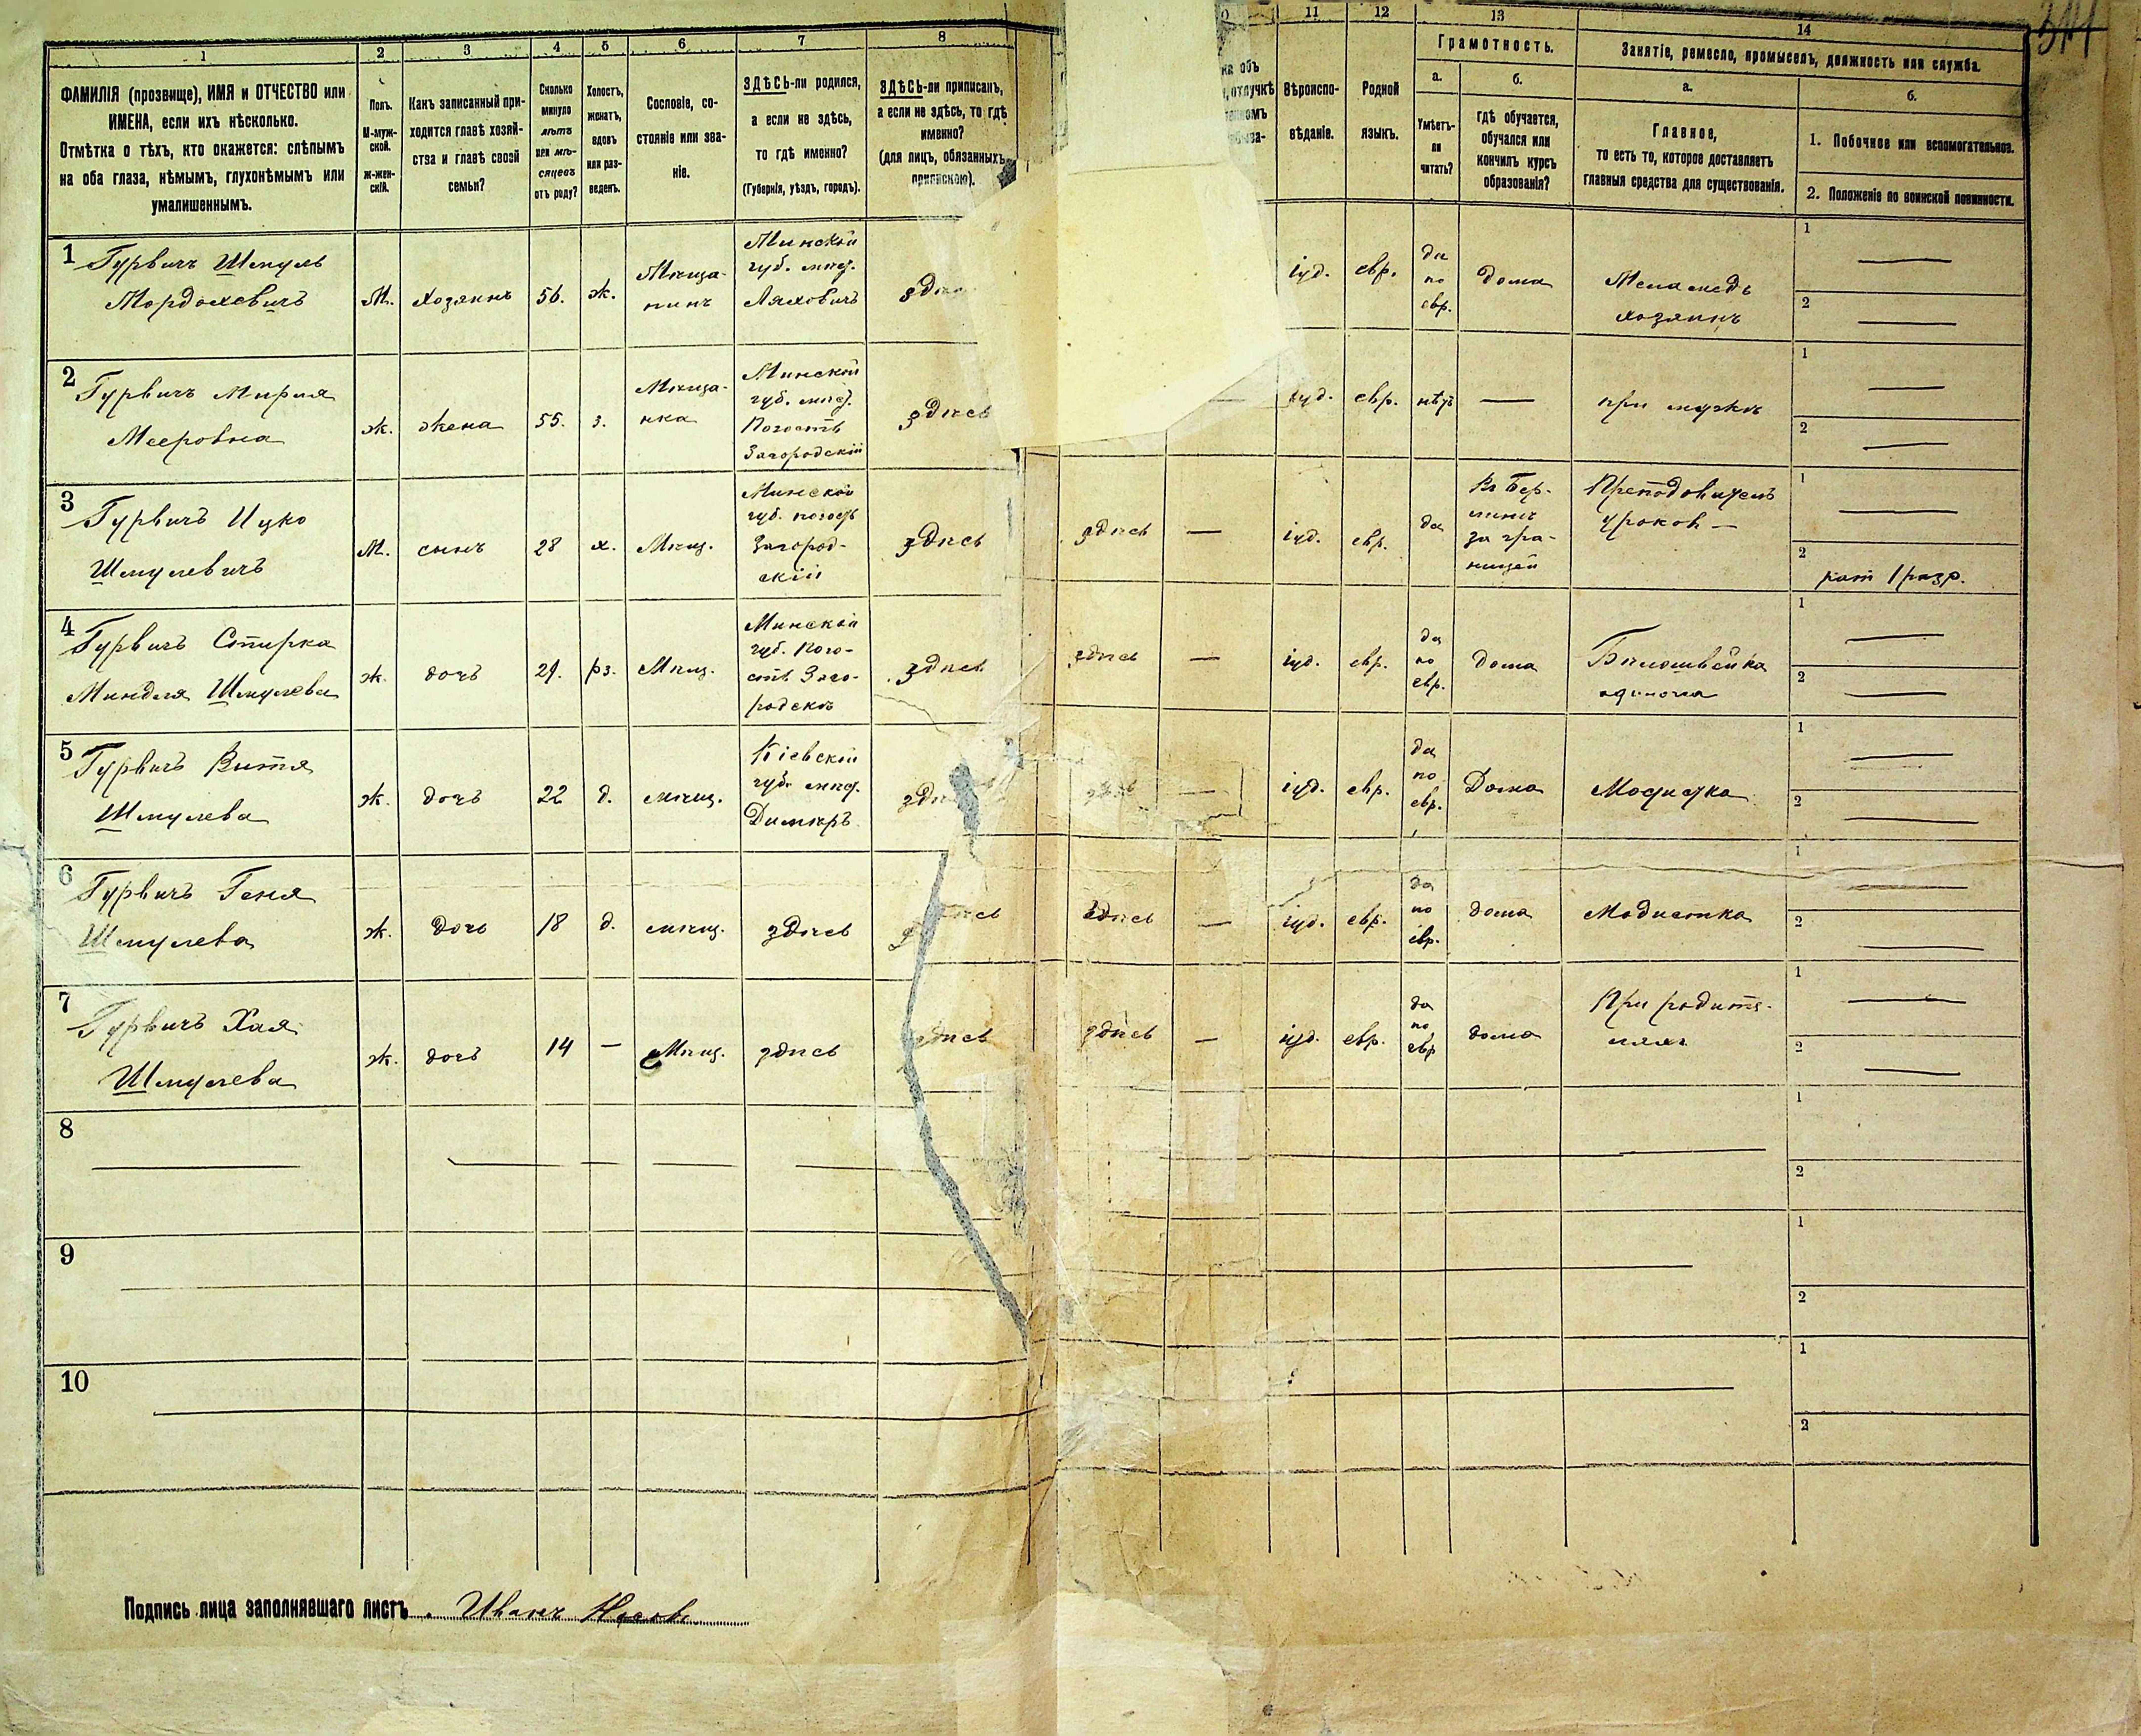 1
2
3
4
5
6
7
8
11
12
13
14
ФАМИЛІЯ (прозвище), ИМЯ и ОТЧЕСТВО или
ИМЕНА, если ихъ нѣсколько.
Отмѣтка о тѣхъ, кто окажется: слѣпымъ
на оба глаза, нѣмымъ, глухонѣмымъ или
умалишеннымъ.
Полъ.
М-муж-
ской.
Ж-жен-
скій.
Какъ записанный при-
ходится главѣ хозяй-
ства и главѣ своей
семьи?
Сколько
минуло
лѣтъ
или мѣ-
сяцевъ
отъ роду?
Холостъ,
женатъ,
вдовъ
или раз-
веденъ.
Сословіе, со-
стояніе или зва-
ніе.
ЗДѢСЬ-ли родился,
а если не здѣсь,
то гдѣ именно?
(Губернія, уѣздъ, городъ).
ЗДѢСЬ-ли приписанъ,
а если не здѣсь, то гдѣ
именно?
(для лицъ, обязанныхъ
припискою).
объ
отлучкѣ
Вѣроиспо-
вѣданіе.
Родной
языкъ.
Грамотность.
а.
Умѣетъ-
ли
читать?
б.
гдѣ обучается,
обучался или
кончилъ курсъ
образованія?
Занятіе, ремесло, промыселъ, должность или служба.
а.
Главное,
то есть то, которое доставляетъ
главныя средства для существованія.
б.
1. Побочное или вспомогательное.
2. Положеніе по воинской повинности.
1
Гурвичъ Шмуль
Мордоховичъ
М.
Хозяинъ
56.
ж.
Мѣща-
нинъ
Минской
губ. мѣст.
Ляховичъ
іуд.
евр.
да
по
евр.
дома
Меламедъ
хозяинъ
1
2
2
Гурвичъ Мирия
Мееровна
ж.
жена
55.
з.
Мѣща-
нка
Минской
губ. мѣст.
Погостъ
Загородскій
здѣсь
іуд.
евр.
нѣтъ
при мужѣ
1
2
3
Гурвичъ Ицко
Шмулевичъ
М.
сынъ
28
х.
Мѣщ.
Минской
губ. погостъ
Загород-
скій
здѣсь
здѣсь
іуд.
евр.
да
Въ Бер-
линѣ
за гра-
ницей
Преподователь
уроковъ
1
2
рат 1 разр.
4
Гурвичъ Стирка
Миндля Шмулева
ж.
дочь
29.
рз.
Мѣщ.
Минской
губ. Пого-
стъ Заго-
родскъ
здѣсь
здѣсь
іуд.
евр.
да
по
евр.
дома
Бѣлошвейка
одиночка
1
2
5
Гурвичъ Витя
Шмулева
ж.
дочь
22
д.
мѣщ.
Кіевской
губ. мѣст.
Димѣръ
іуд.
евр.
да
по
евр.
Дома
Модистка
1
2
6
Гурвичъ Геня
Шмулева
ж.
дочь
18
д.
мѣщ.
здѣсь
здѣсь
здѣсь
іуд.
евр.
да
по
евр.
дома
Модистка
1
2
7
Гурвичъ Хая
Шмулева
ж.
дочь
14
Мѣщ.
здѣсь
здѣсь
здѣсь
іуд.
евр.
да
по
евр
дома
При родите-
ляхъ
1
2
8
1
2
9
1
2
10
1
2
Подпись лица заполнявшаго листъ Иванъ